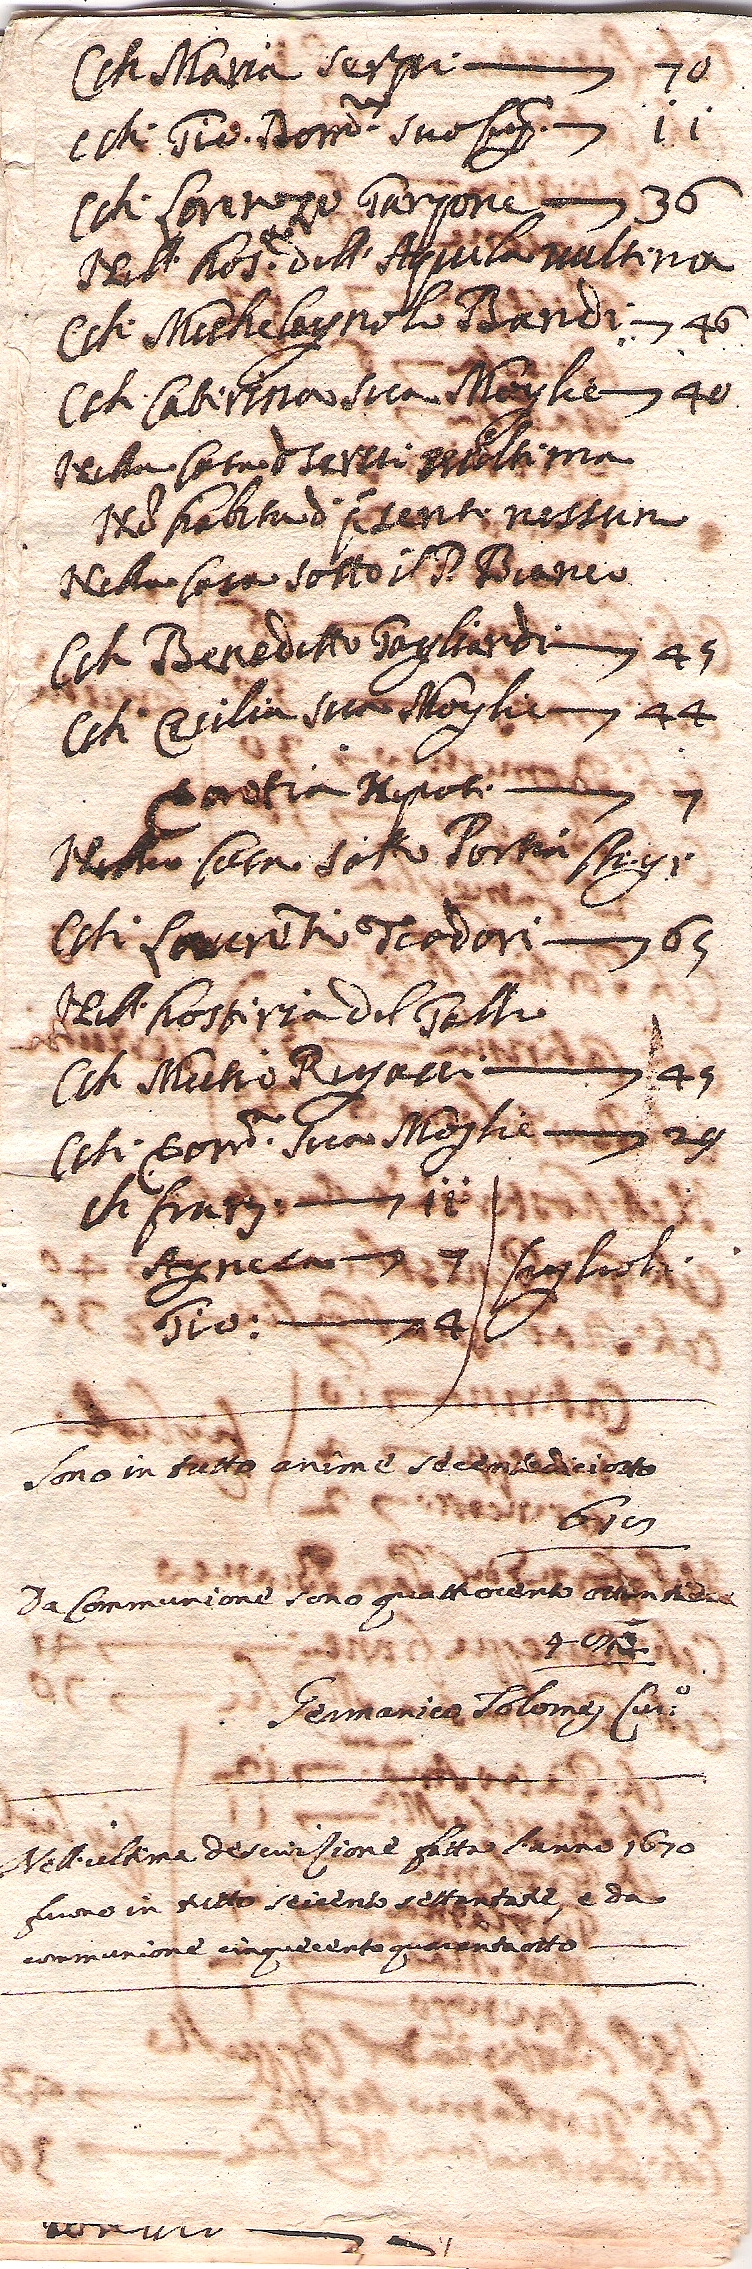 CCh Maria Serpi 70
CCh. Gio. Dom.ca suo 11
CCh. Lorenzo Garzone 36
Nell. hos.ria dell. Aquila ultima
CCh. Michelagnolo Bandi 46
CCh. Caterina sua Moglie 40
Nella Casa d Servi ultima
No habita di presente nessun
Nella Casa sotto il P. Bianco
CCh Benedetto Gagliardi 45
CCh. Cecilia sua Moglie 44
Nepote 7
Nella Casa sotto Portia
CCh. Teodori 65
Nell. hosteria del Gallo
CCh Mutio 45
CCh. Dom.ca sua Moglie 29
Ch Franc. 11
Agnesa 7 figlioli.
Gio: 4
Sono in tutto anime secentediciotto
618
Da Communione sono quattrocento
Germanico Tolomei Cur.o
Nell'ultima descrizione fatta l'anno 1670
furono in tutto seicento settantatre, e da
communione cinquecento quarantaotto